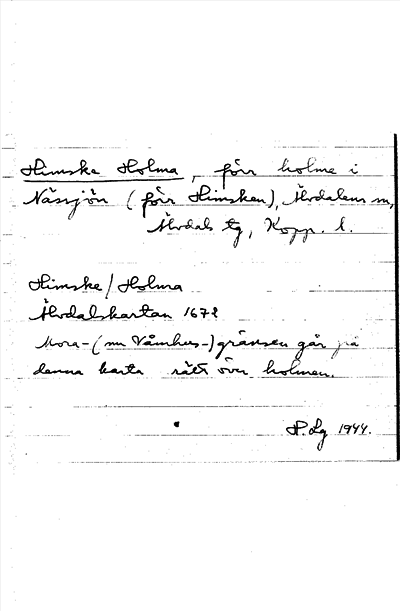 Himske Holma, förr holme i
Nässjön (förr Himsken), Älvdalens sn,
Älvdals tg, Kopp. l.
Himske/Holma
Älvdalskartan 1672
Mora-(nu Våmhus-)gränsen går på
denna karta rätt över holmen.
H.Lg 1944.